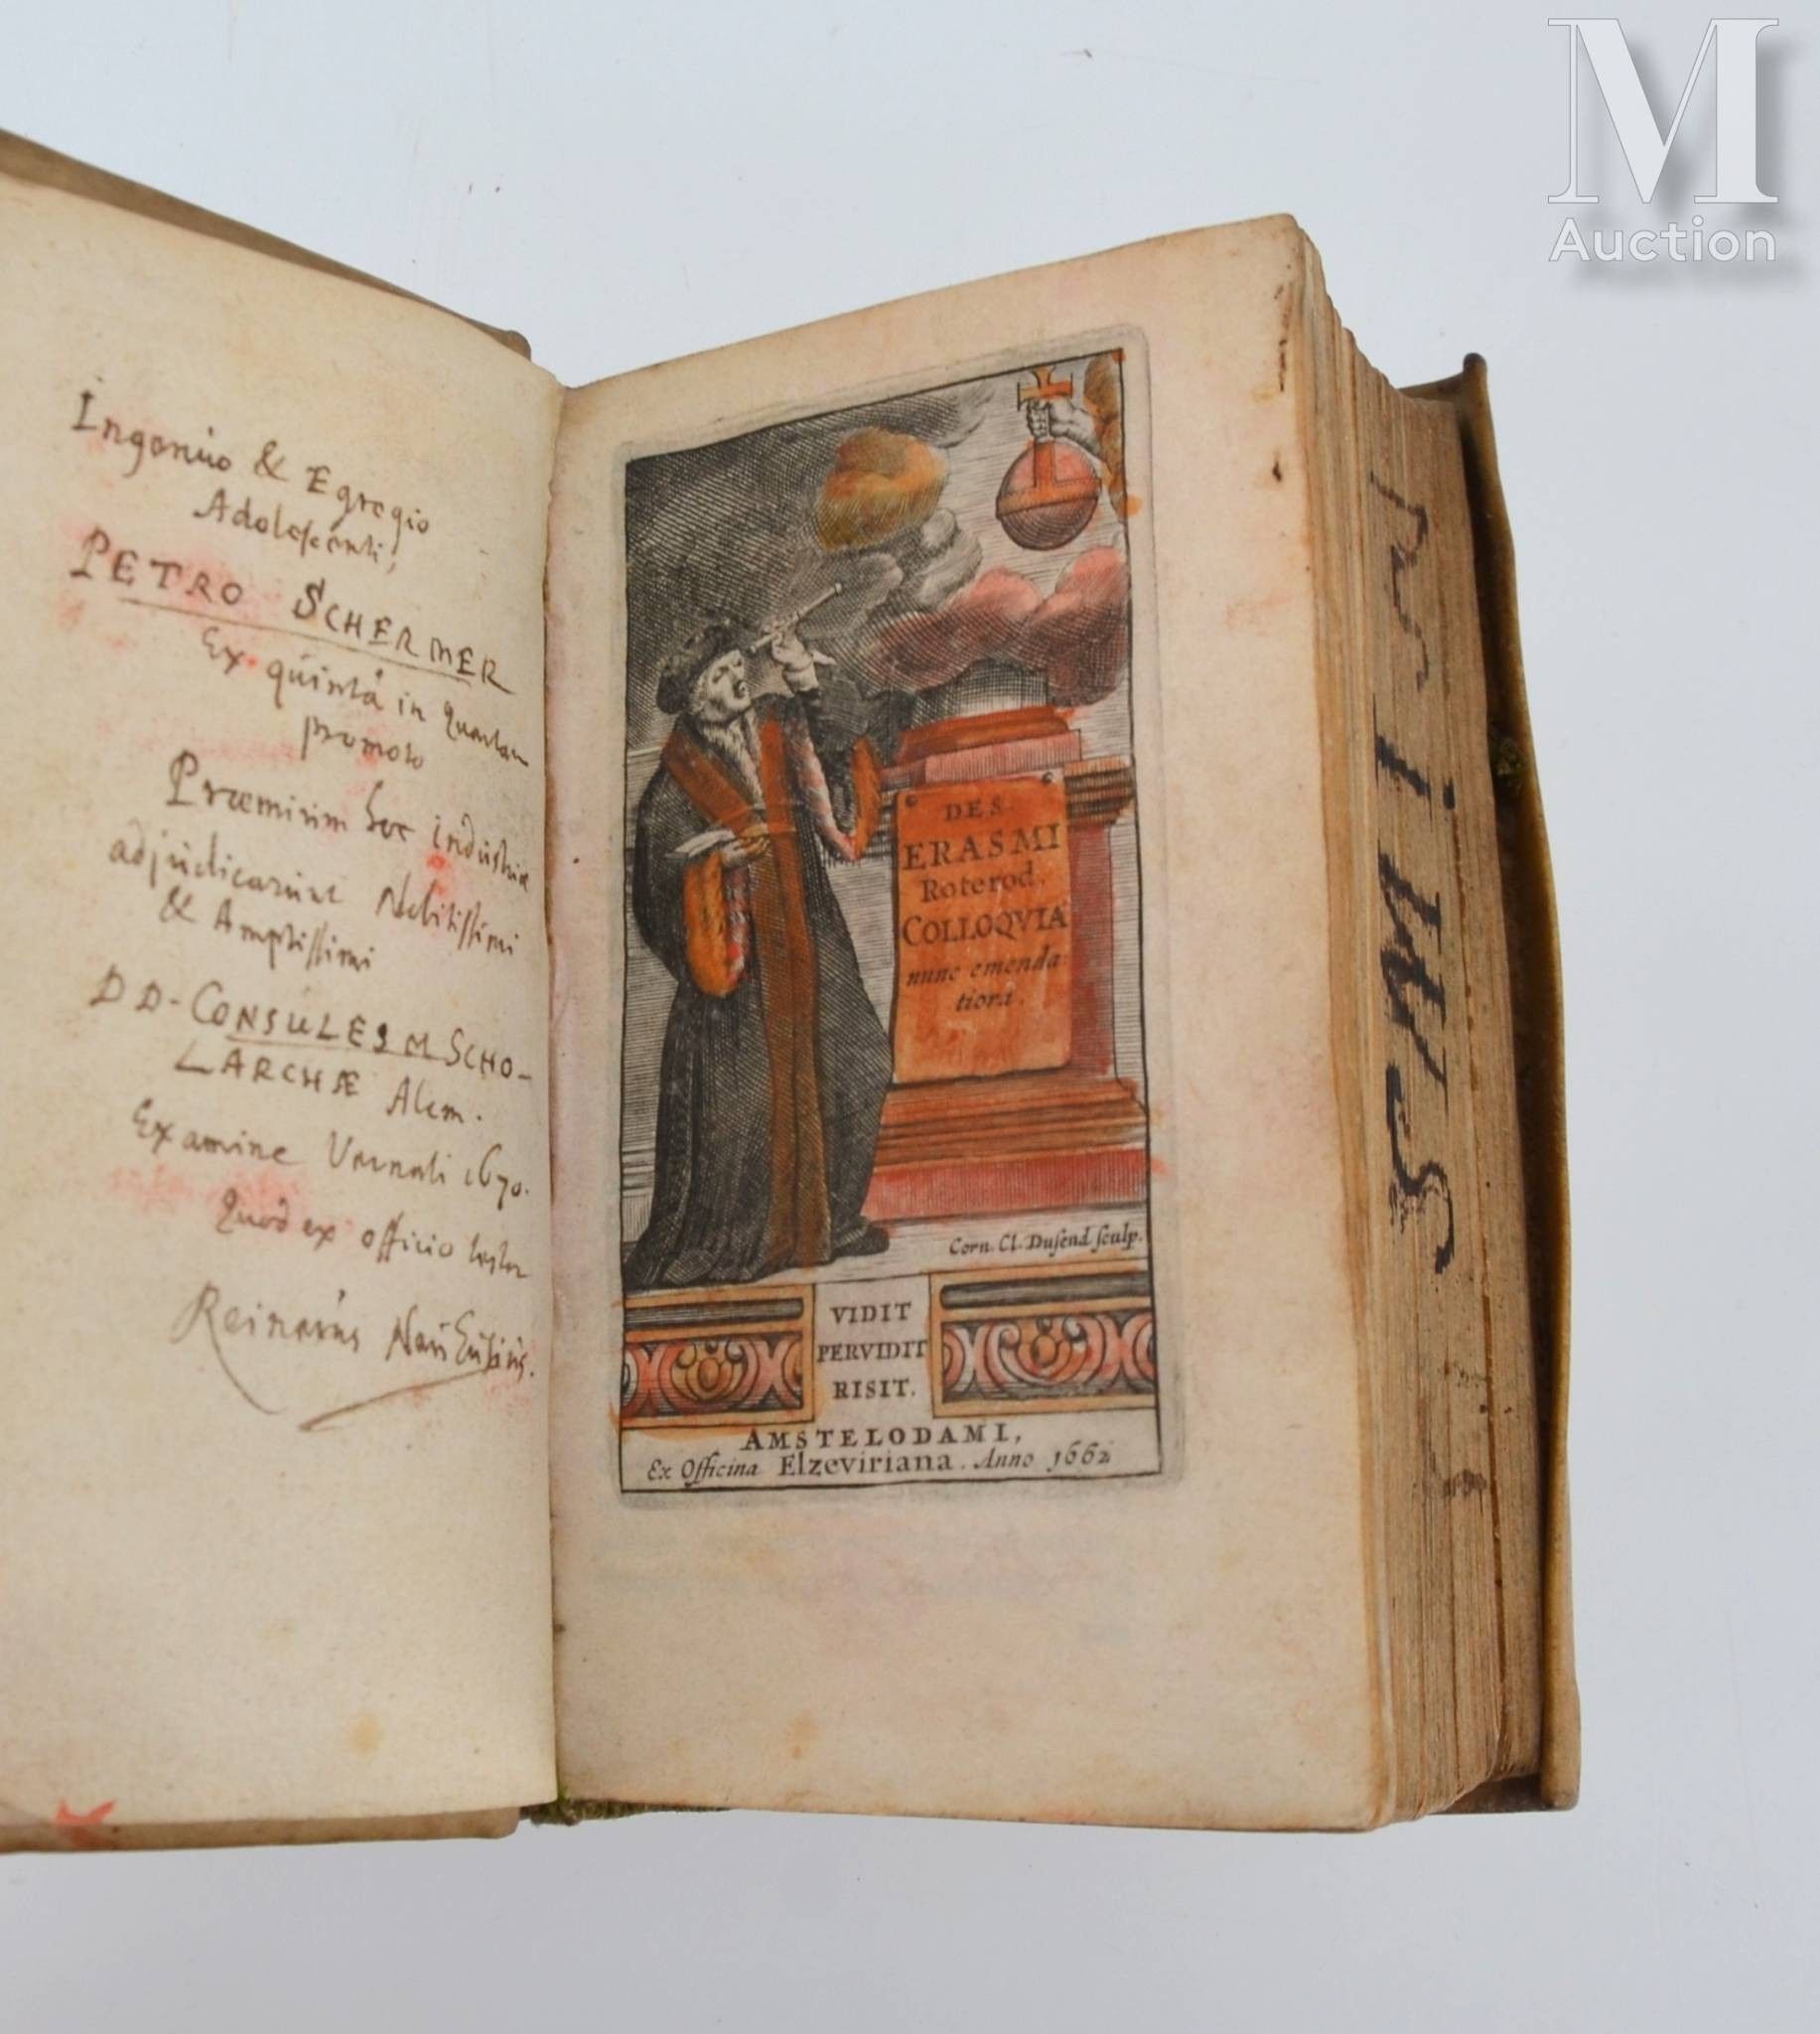 Ingenuo & Egregio
Adolescenti,
PETRO SCHERMER
Ex quintâ in Quartam
promoto
Præmium hoc industriæ
adjudicarunt Nobilissimi
& Amplissimi
DD. CONSULES SCHO-
LARCHÆ Alcm.
Examine Vernali 1670.
Quod ex officio testor
Reinerus Neuhusius.
DES.
ERASMI
Roterod.
COLLOQVIA
nunc emenda
tiora.
Corn. Cl. Dusend sculp.
VIDIT
PERVIDIT
RISIT.
AMSTELODAMI,
Ex Officina Elzeviriana. Anno 1662
M
Auction